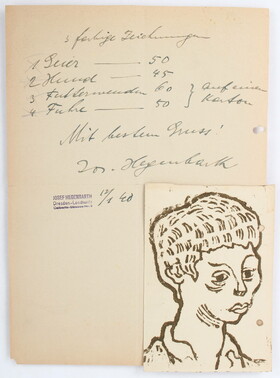 3 farbige Zeichnungen
1 Geier — 50
2 Hund — 45
3 60 } auf einem
4 Fuhre — 50 } Karton
Mit bestem Gruss!
Jos. Hegenbarth
JOSEF HEGENBARTH
Dresden-Loschwitz
40